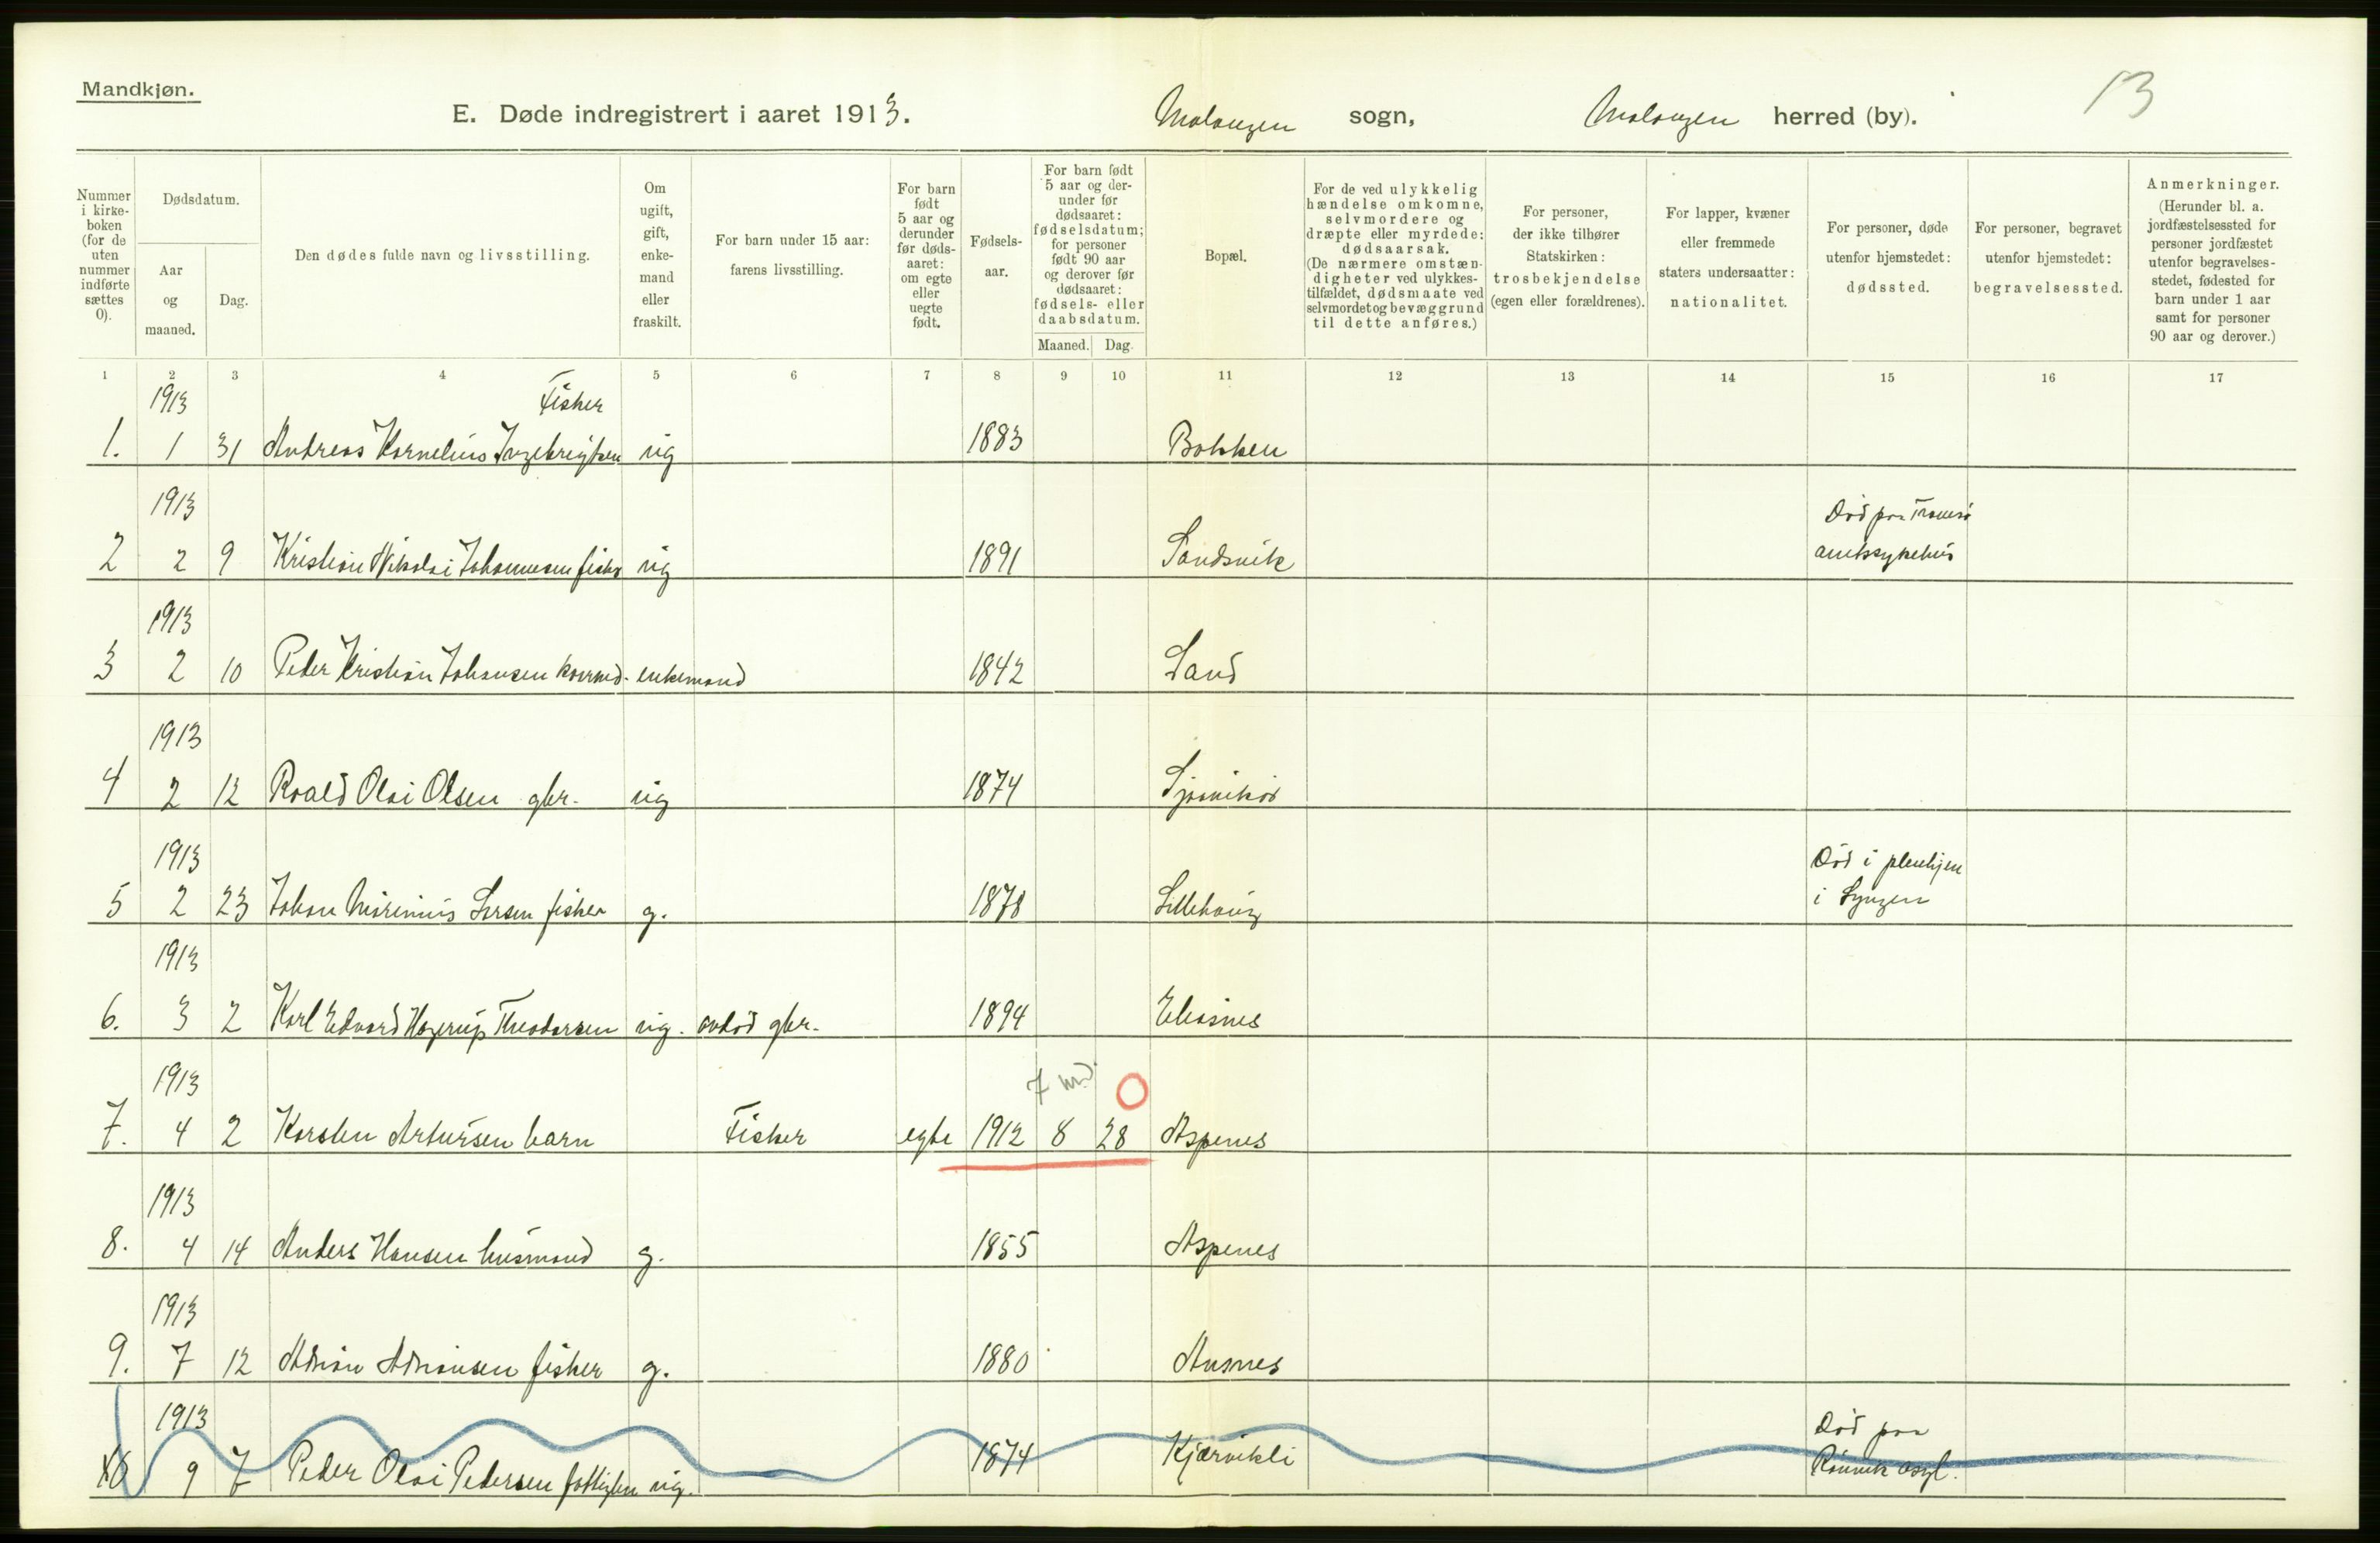 Mandkjøn.
E. Døde indregistrert i aaret 1913.
Malangen sogn,
Malangen herred (by).
13
Nummer
i kirke-
boken
(for de
uten
nummer
indførte
sættes
0).
Dødsdatum.
Aar
og
maaned.
Dag.
Den dødes fulde navn og livsstilling.
Om
ugift,
gift,
enke-
mand
eller
fraskilt.
For barn under 15 aar:
farens livsstilling.
For barn
født
5 aar og
derunder
før døds-
aaret:
om egte
eller
uegte
født.
Fødsels-
aar.
For barn født
5 aar og der-
under før
dødsaaret:
fødselsdatum;
for personer
født 90 aar
og derover før
dødsaaret:
fødsels- eller
daabsdatum.
Maaned. Dag.
Bopæl.
For de ved ulykkelig
hændelse omkomne,
selvmordere og
dræpte eller myrdede:
dødsaarsak.
(De nærmere omstæn-
digheter ved ulykkes-
tilfældet, dødsmaate ved
selvmordet og bevæggrund
til dette anføres.)
For personer,
der ikke tilhører
Statskirken:
trosbekjendelse
(egen eller forældrenes).
For lapper, kvæner
eller fremmede
staters undersaatter:
nationalitet.
For personer, døde
utenfor hjemstedet:
dødssted.
For personer, begravet
utenfor hjemstedet:
begravelsessted.
Anmerkninger.
(Herunder bl. a.
jordfæstelsessted for
personer jordfæstet
utenfor begravelses-
stedet, fødested for
barn under 1 aar
samt for personer
90 aar og derover.)
1 2 3 4 5 6 7 8 9 10 11 12 13 14 15 16 17
1913 Fisker
1. 1 31 Andreas Kornelius Ingebrigtsen ug 1883 Bakken
1913 Død paa Tromsø
2 2 9 Kristian Nikolai Johannesen fisker ug 1891 Sandsvik amtssykehus
1913
3 2 10 Peder Kristian Johansen kaarmd. enkemand 1842 Sand
1913
4 2 12 Roald Olai Olsen gbr. ug 1874
1913 Død i pleiehjem
5 2 23 Johan Marinius Larsen fisker g. 1878 Lillehaug i Lyngen
1913
6. 3 2 Karl Edvard Hagerup Theodorsen ug. avdød gbr. 1894 Eliasnes
1913 7 md. O
7. 4 2 Karsten Artursen barn Fisker egte 1912 8 28 Aspenes
1913
8. 4 14 Anders Hansen husmand g. 1855 Aspenes
1913
9. 7 12 Adrian Adriansen fisker g. 1880 Ansnes
1913 Død paa
10 9 7 Peder Olai Pedersen fattiglem ug. 1874 Kjærvikli Rønvik asyl.